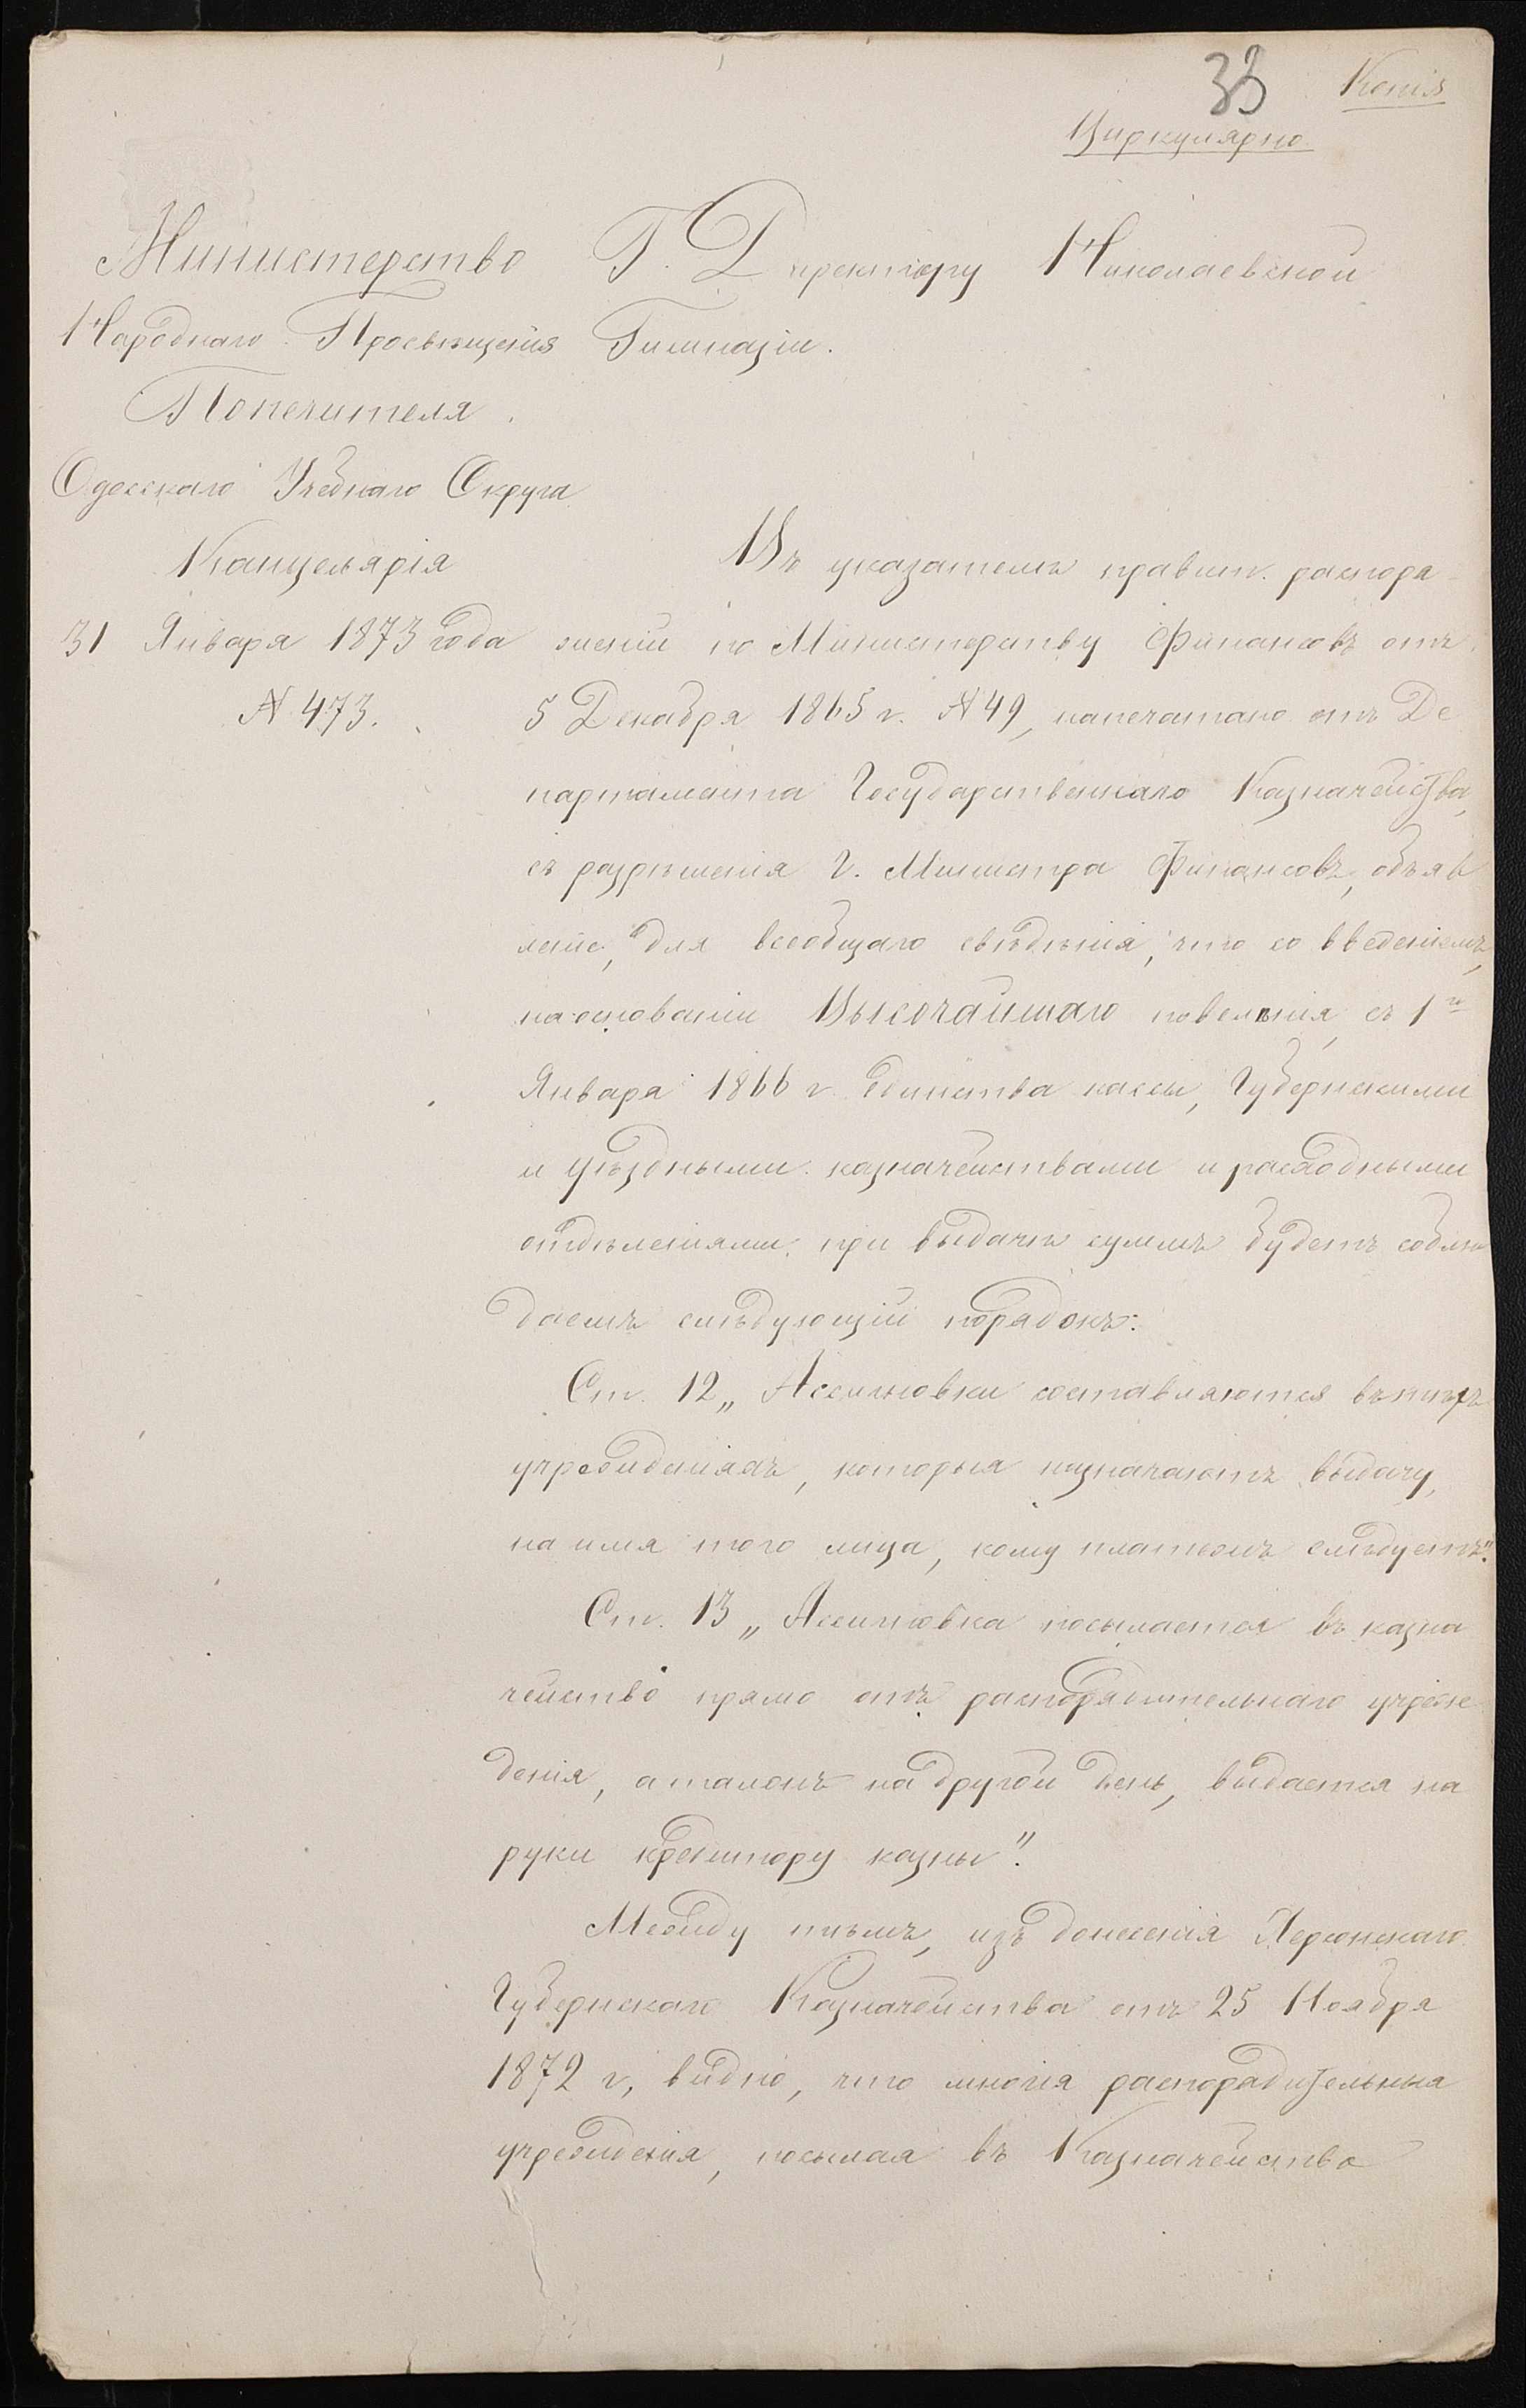 33
Копія
Циркулярно
Министерство
Народнаго Просвѣщенія
Попечителя
Одесскаго Учебнаго Округа
Канцелярія
31 Января 1873 года
№ 473.
Г. Директору Николаевской
Гимназіи.
Въ указателѣ правит. распоря-
женій по Министерству Финансовъ отъ
5 Декабря 1865 г. № 49, напечатано отъ Де
партамента Государственнаго Казначейства,
съ разрѣшенія Г. Министра Финансовъ, объяв
леніе, для всеобщаго свѣдѣнія, что со введеніемъ,
на основаніи Высочайшаго повелѣнія, съ 1го
Января 1866 г. единства кассы, Губернскими
и уѣздными казначействами и расходными
отдѣленіями, при выдачѣ суммъ будетъ соблю
даемъ слѣдующій порядокъ:
Ст. 12 „Ассигновки составляются въ тѣхъ
учрежденіяхъ, которыя назначаютъ выдачу,
на имя того лица, кому платежъ слѣдуетъ".
Ст. 13 „Ассигновка посылается въ казна
чейство прямо отъ распорядительнаго учреж
денія, а талонъ на другой день, выдается на
руки кредитору казны".
Между тѣмъ, изъ донесенія Херсонскаго
Губернскаго Казначейства отъ 25 Ноября
1872 г., видно, что многія распорядительныя
учрежденія, посылая въ Казначейство